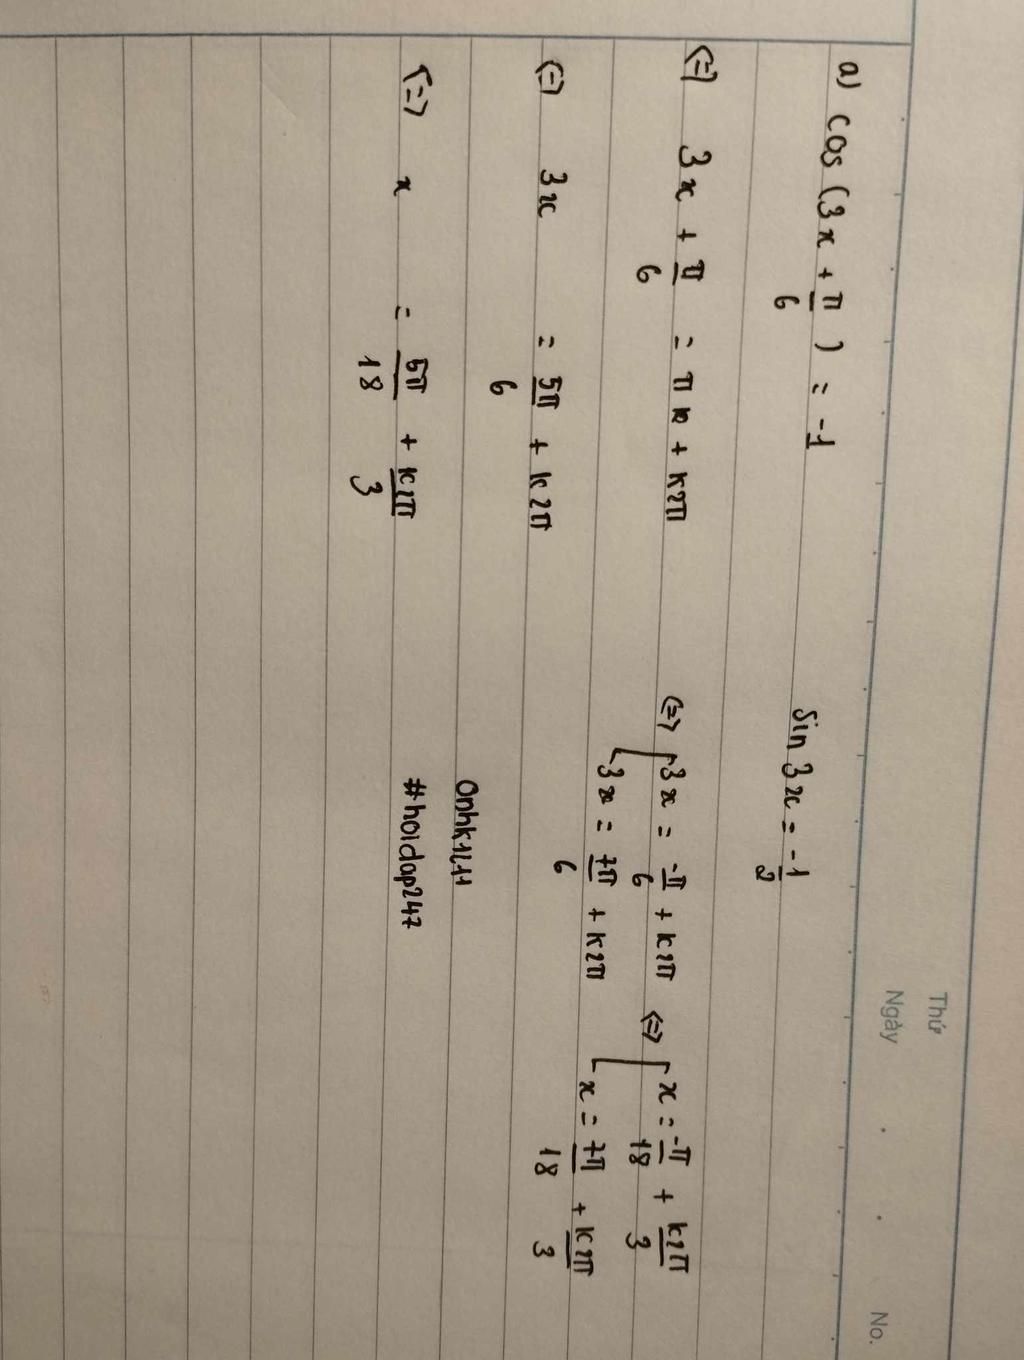 Thứ
Ngày No.
a) cos (3x + π/6) = -1
(=) 3x + π/6 = π + k2π
(=) 3x = 5π/6 + k2π
(=) x = 5π/18 + k2π/3
sin 3x = -1/2
(=) [ 3x = -π/6 + k2π (=) [ x = -π/18 + k2π/3
3x = 7π/6 + k2π x = 7π/18 + k2π/3
#hoidap247